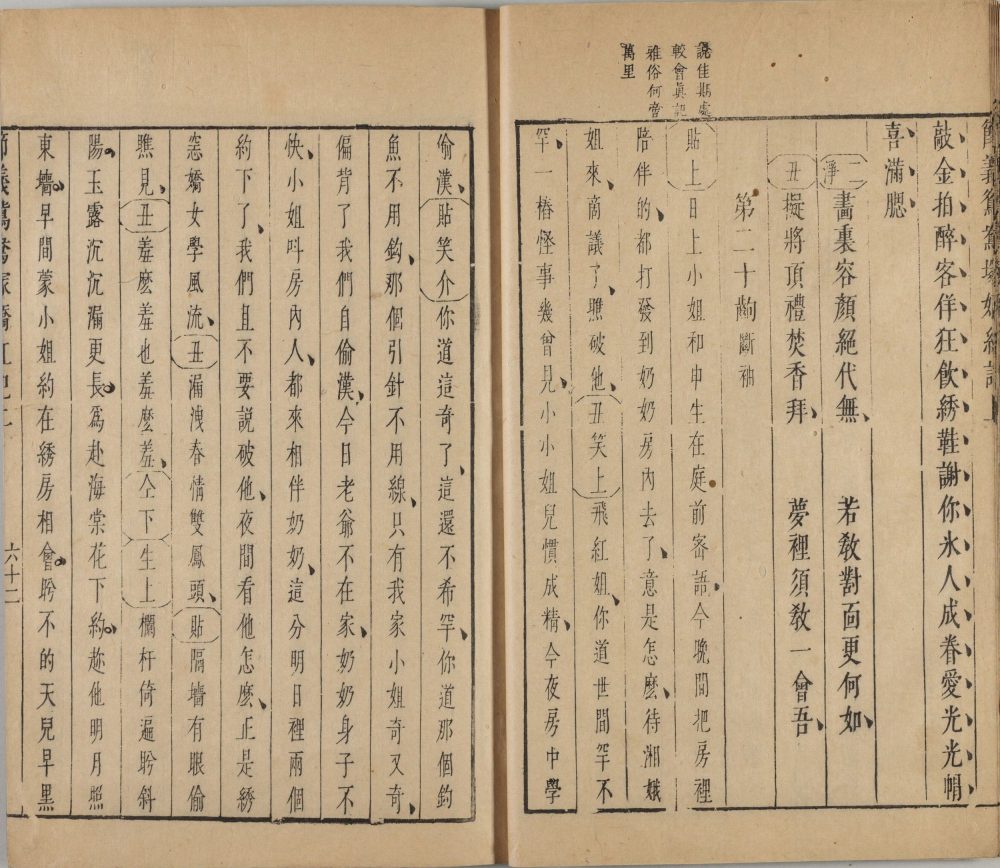 敲金拍醉客佯狂飲綉鞋謝你氷人成眷愛光光帽
喜滿腮
二淨畵裏容顏絕代無　若教對面更何如
丑擬將頂禮焚香拜　夢裡須教一會吾
第二十齣斷袖
說佳期處
較會眞記
雅俗何啻
萬里
貼上日上小姐和申生在庭前密語今晚間把房裡
陪伴的都打發到奶奶房內去了意是怎麼待湘娥
姐來商議了瞧破他丑笑上飛紅姐你道世間罕不
罕一樁怪事幾曾見小小姐兒慣成精今夜房中學
偷漢貼笑介你道這奇了這還不希罕你道那個釣
魚不用鈎那個引針不用線只有我家小姐奇又奇
偏背了我們自偷漢今日老爺不在家奶奶身子不
快小姐呌房內人都來相伴奶奶這分明日裡兩個
約下了我們且不要說破他夜間看他怎麼正是綉
窓嬌女學風流丑漏洩春情雙鳳頭貼隔墻有眼偷
瞧見丑羞麽羞也羞麼羞仝下生上欄杆倚遍盻斜
陽玉露沉沉漏更長爲赴海棠花下約趂他明月照
東墻早間蒙小姐約在綉房相會盻不的天兒早黑
節義鴛鴦塚嬌紅記
六十二